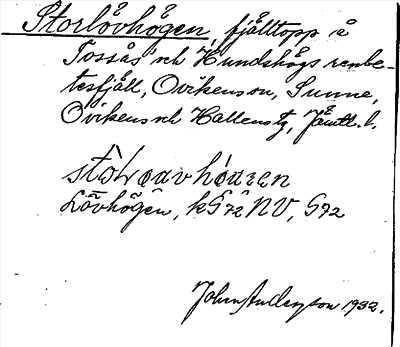 Storlövhögen, fjälltopp å
Tossås och Hundshögs renbe-
tesfjäll, Ovikens sn, Sunne,
Ovikens och Hallens tg, Jämtl. l.
Lövhögen, kG 72 NV, G 72
John Anderson 1932.